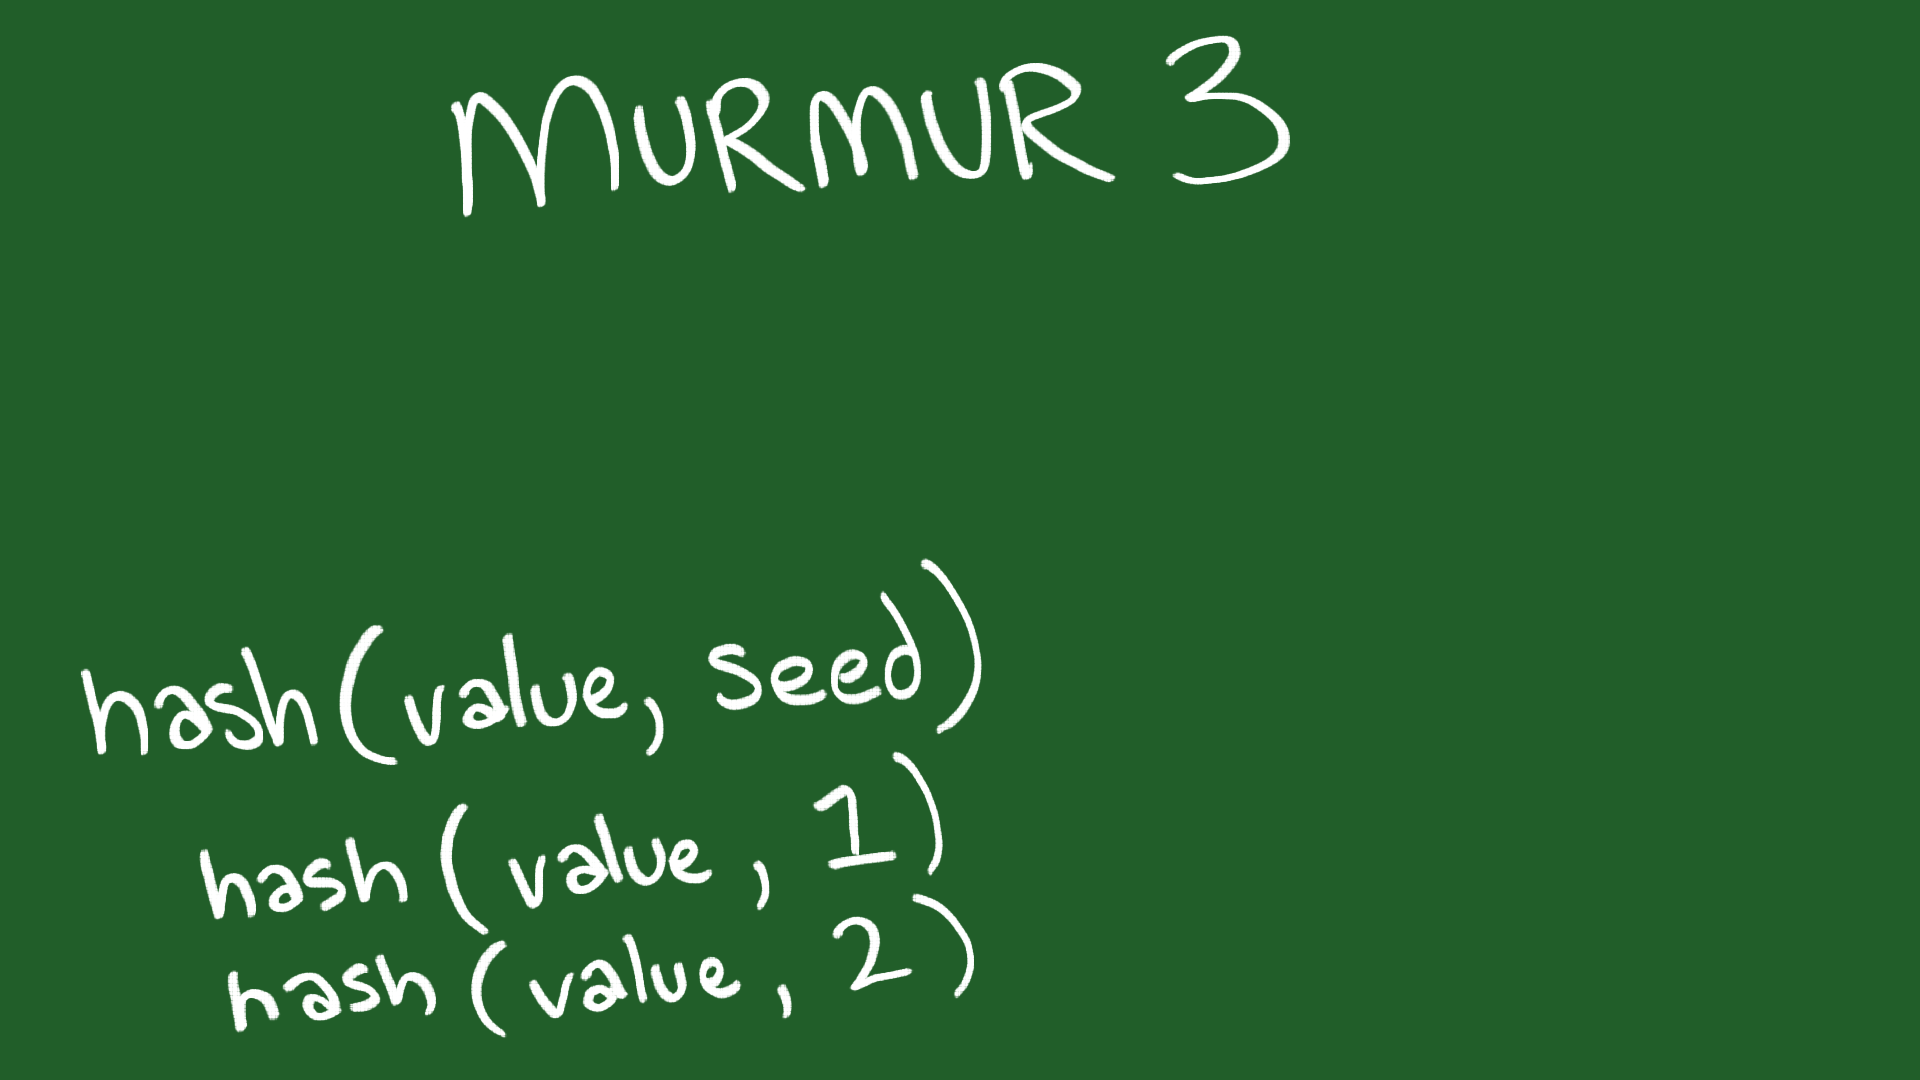 MURMUR 3
hash(value, seed)
hash(value, 1)
hash(value, 2)